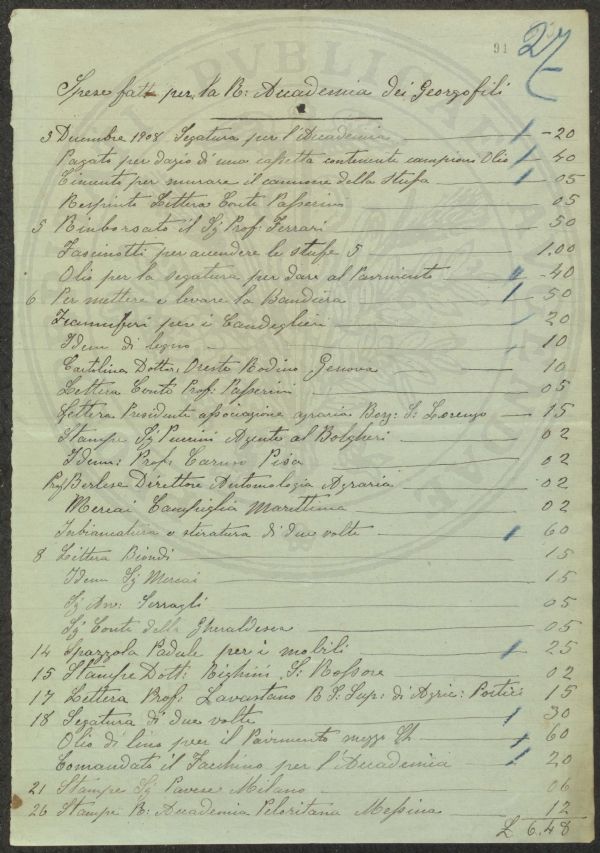 91 27
Spese fatte per la R: Accademia dei Georgofili
3 Dicembre 1908 Segatura per l'Accademia - 20
Pagato per dazio di una cassetta contenente campioni Olio 40
Cimento per murare il cannone della Stufa 05
Respinto Lettera Conte Passerini 05
5 Rimborsato il Sg Prof: Ferrari 50
Fascinotti per accendere le stufe 5 1.00
Olio per la segatura per dare al Pavimento - 40
6 Per mettere e levare la Bandiera 50
per i Candeglieri 20
Idem di legno 10
Cartolina Dottor: Oreste Bodino Genova 10
Lettera Conte Prof: Passerini 05
Lettera Presidente associazione agraria Borg: S: Lorenzo 15
Stampe Sg Puccini Agente al Bolgheri 02
Idem: Prof: Caruso Pisa 02
Prof Berlese Direttore Automologia Agraria 02
Mercai Campiglia Marittima 02
Inbiancatura e stiratura di due volte 60
8 Lettera Biondi 15
Idem Sg Mercai 15
Sg Avv: Serragli 05
Sg Conte della Gheraldesca 05
14 Spazzola Padale per i mobili 25
15 Stampe Dott: Bighini S: Rossore 02
17 Lettera Prof: Lavastano R S: Sup: di Agric: Portici 15
18 Segatura di due volte 30
Olio di lino per il Pavimento mezzo 60
Comandato il Facchino per l'Accademia 20
21 Stampe Sg Pavese Milano 06
26 Stampe R: Accademia Peloritana Messina 12
£ 6.48